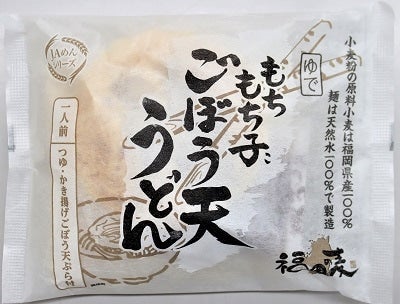 小麦粉の原料小麦は福岡県産100%
麺は天然水100%で製造
ゆで
もち
もち子に
ごぼう天
うどん
JAめん
シリーズ
一人前
つゆ・かき揚げごぼう天ぷら付
福の麦